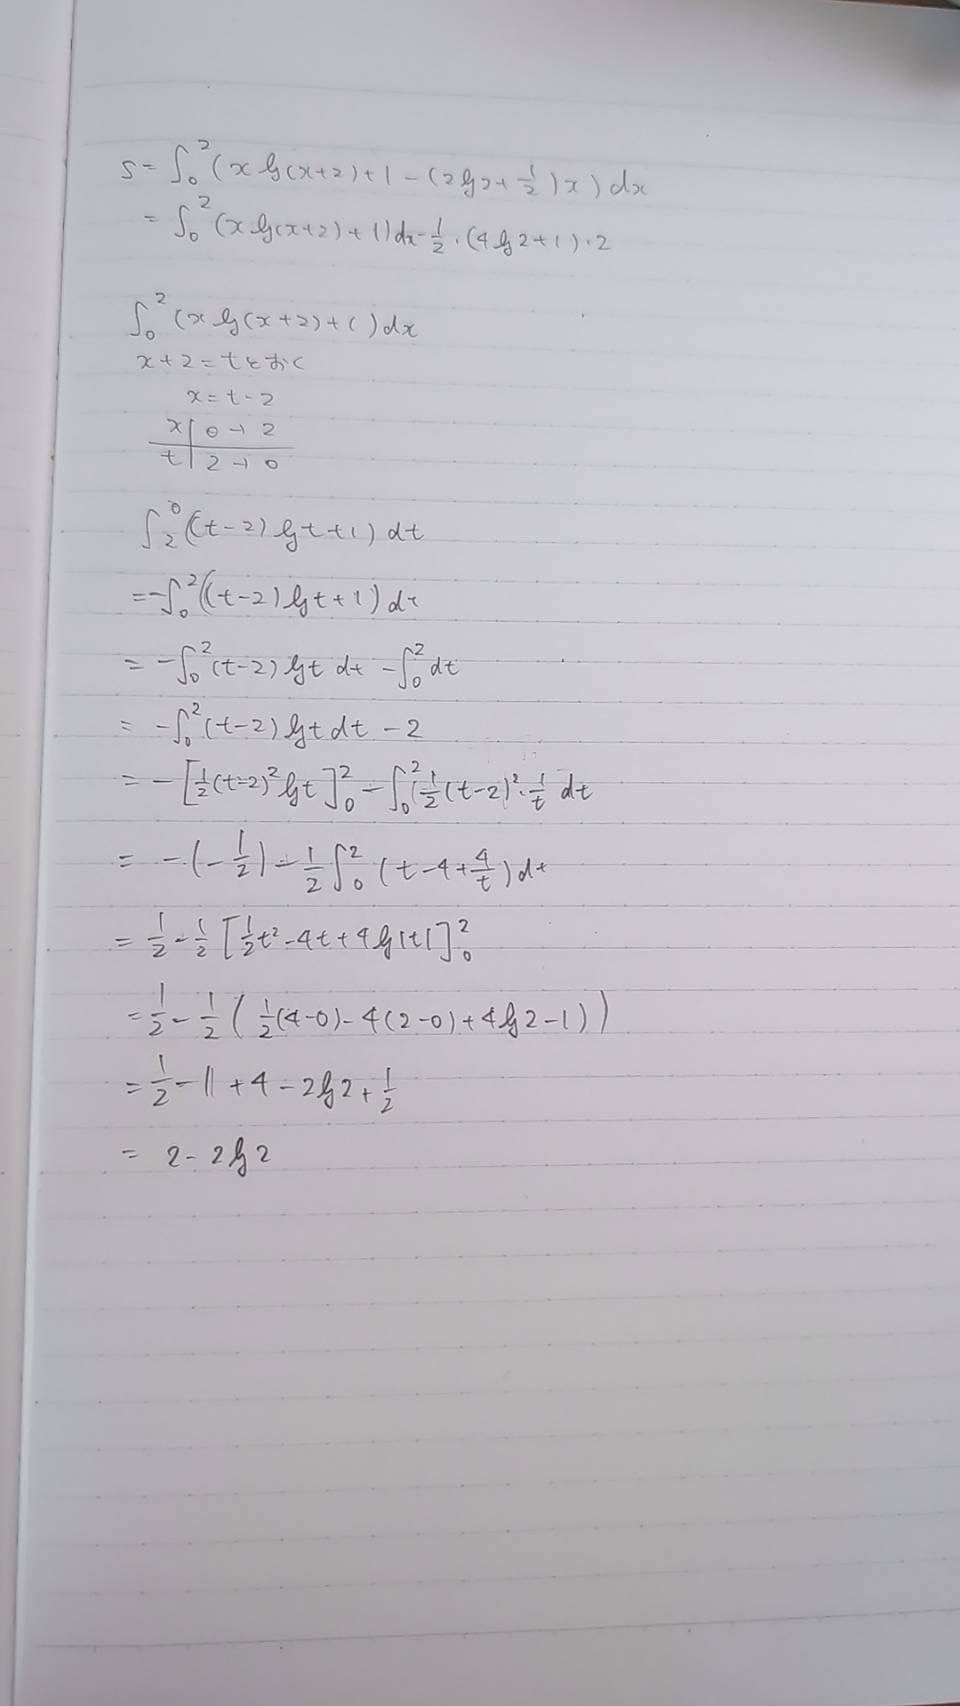 S = ∫₀² (x log(x+2) + 1 - (2log2 + 1/2)x) dx
= ∫₀² (x log(x+2) + 1) dx - 1/2・(4log2+1)・2
∫₀² (x log(x+2) + 1) dx
x+2 = tとおく
x = t-2
x | 0 → 2
t | 2 → 0
∫₂⁰ ((t-2) log t + 1) dt
= -∫₀² ((t-2) log t + 1) dt
= -∫₀² (t-2) log t dt - ∫₀² dt
= -∫₀² (t-2) log t dt - 2
= -[1/2(t-2)² log t]₀² - ∫₀² (1/2(t-2)²・1/t dt
= -(-1/2) - 1/2 ∫₀² (t-4+4/t) dt
= 1/2 - 1/2 [1/2t² - 4t + 4log|t|]₀²
= 1/2 - 1/2 (1/2(4-0) - 4(2-0) + 4log2-1))
= 1/2 - 1 + 4 - 2log2 + 1/2
= 2 - 2log2